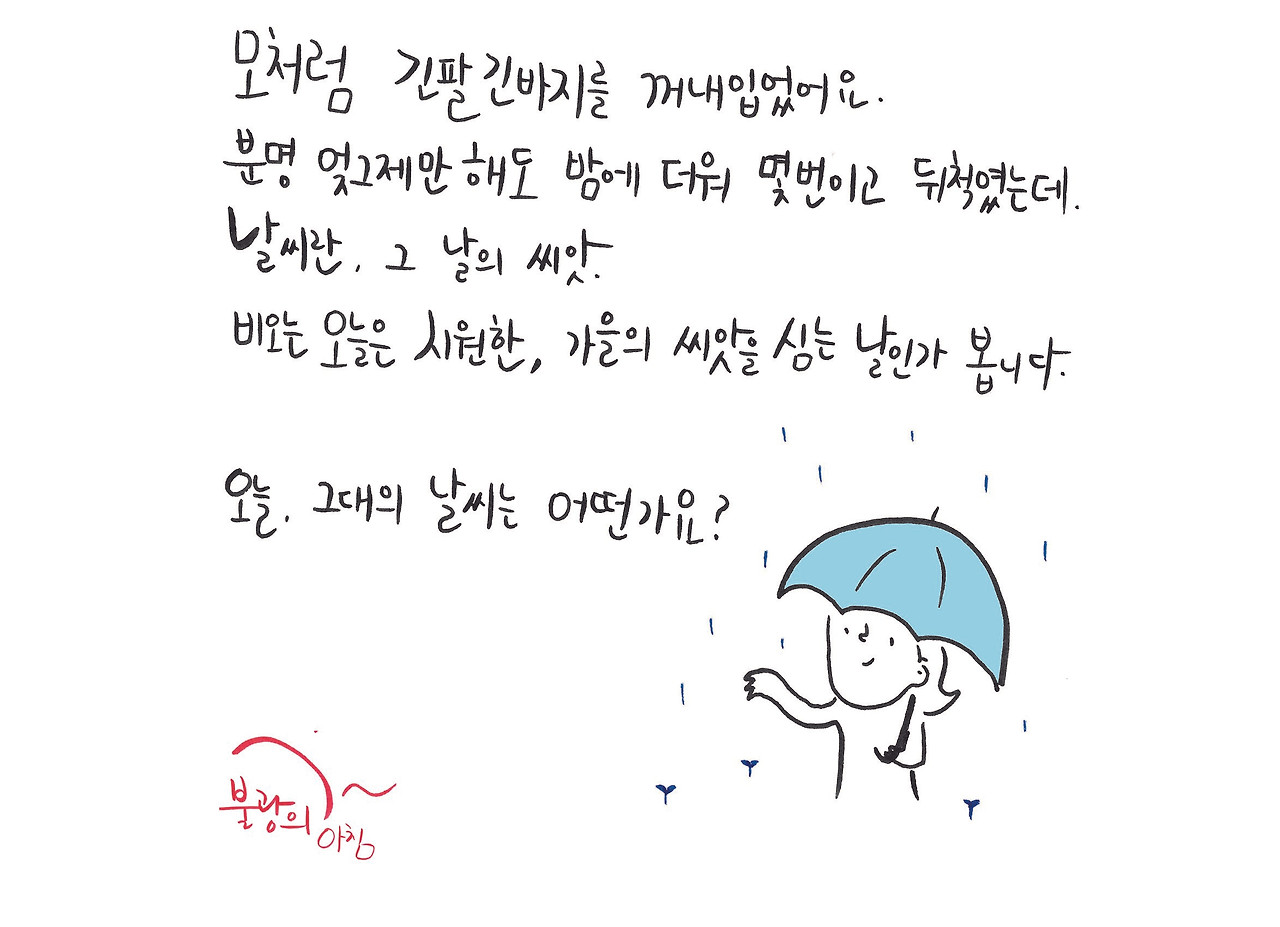 모처럼 긴팔 긴바지를 꺼내입었어요.
분명 엊그제만 해도 밤에 더워 몇번이고 뒤척였는데.
날씨란, 그 날의 씨앗.
비오는 오늘은 시원한, 가을의 씨앗을 심는 날인가 봅니다.
오늘, 그대의 날씨는 어떤가요?
불광의
아침